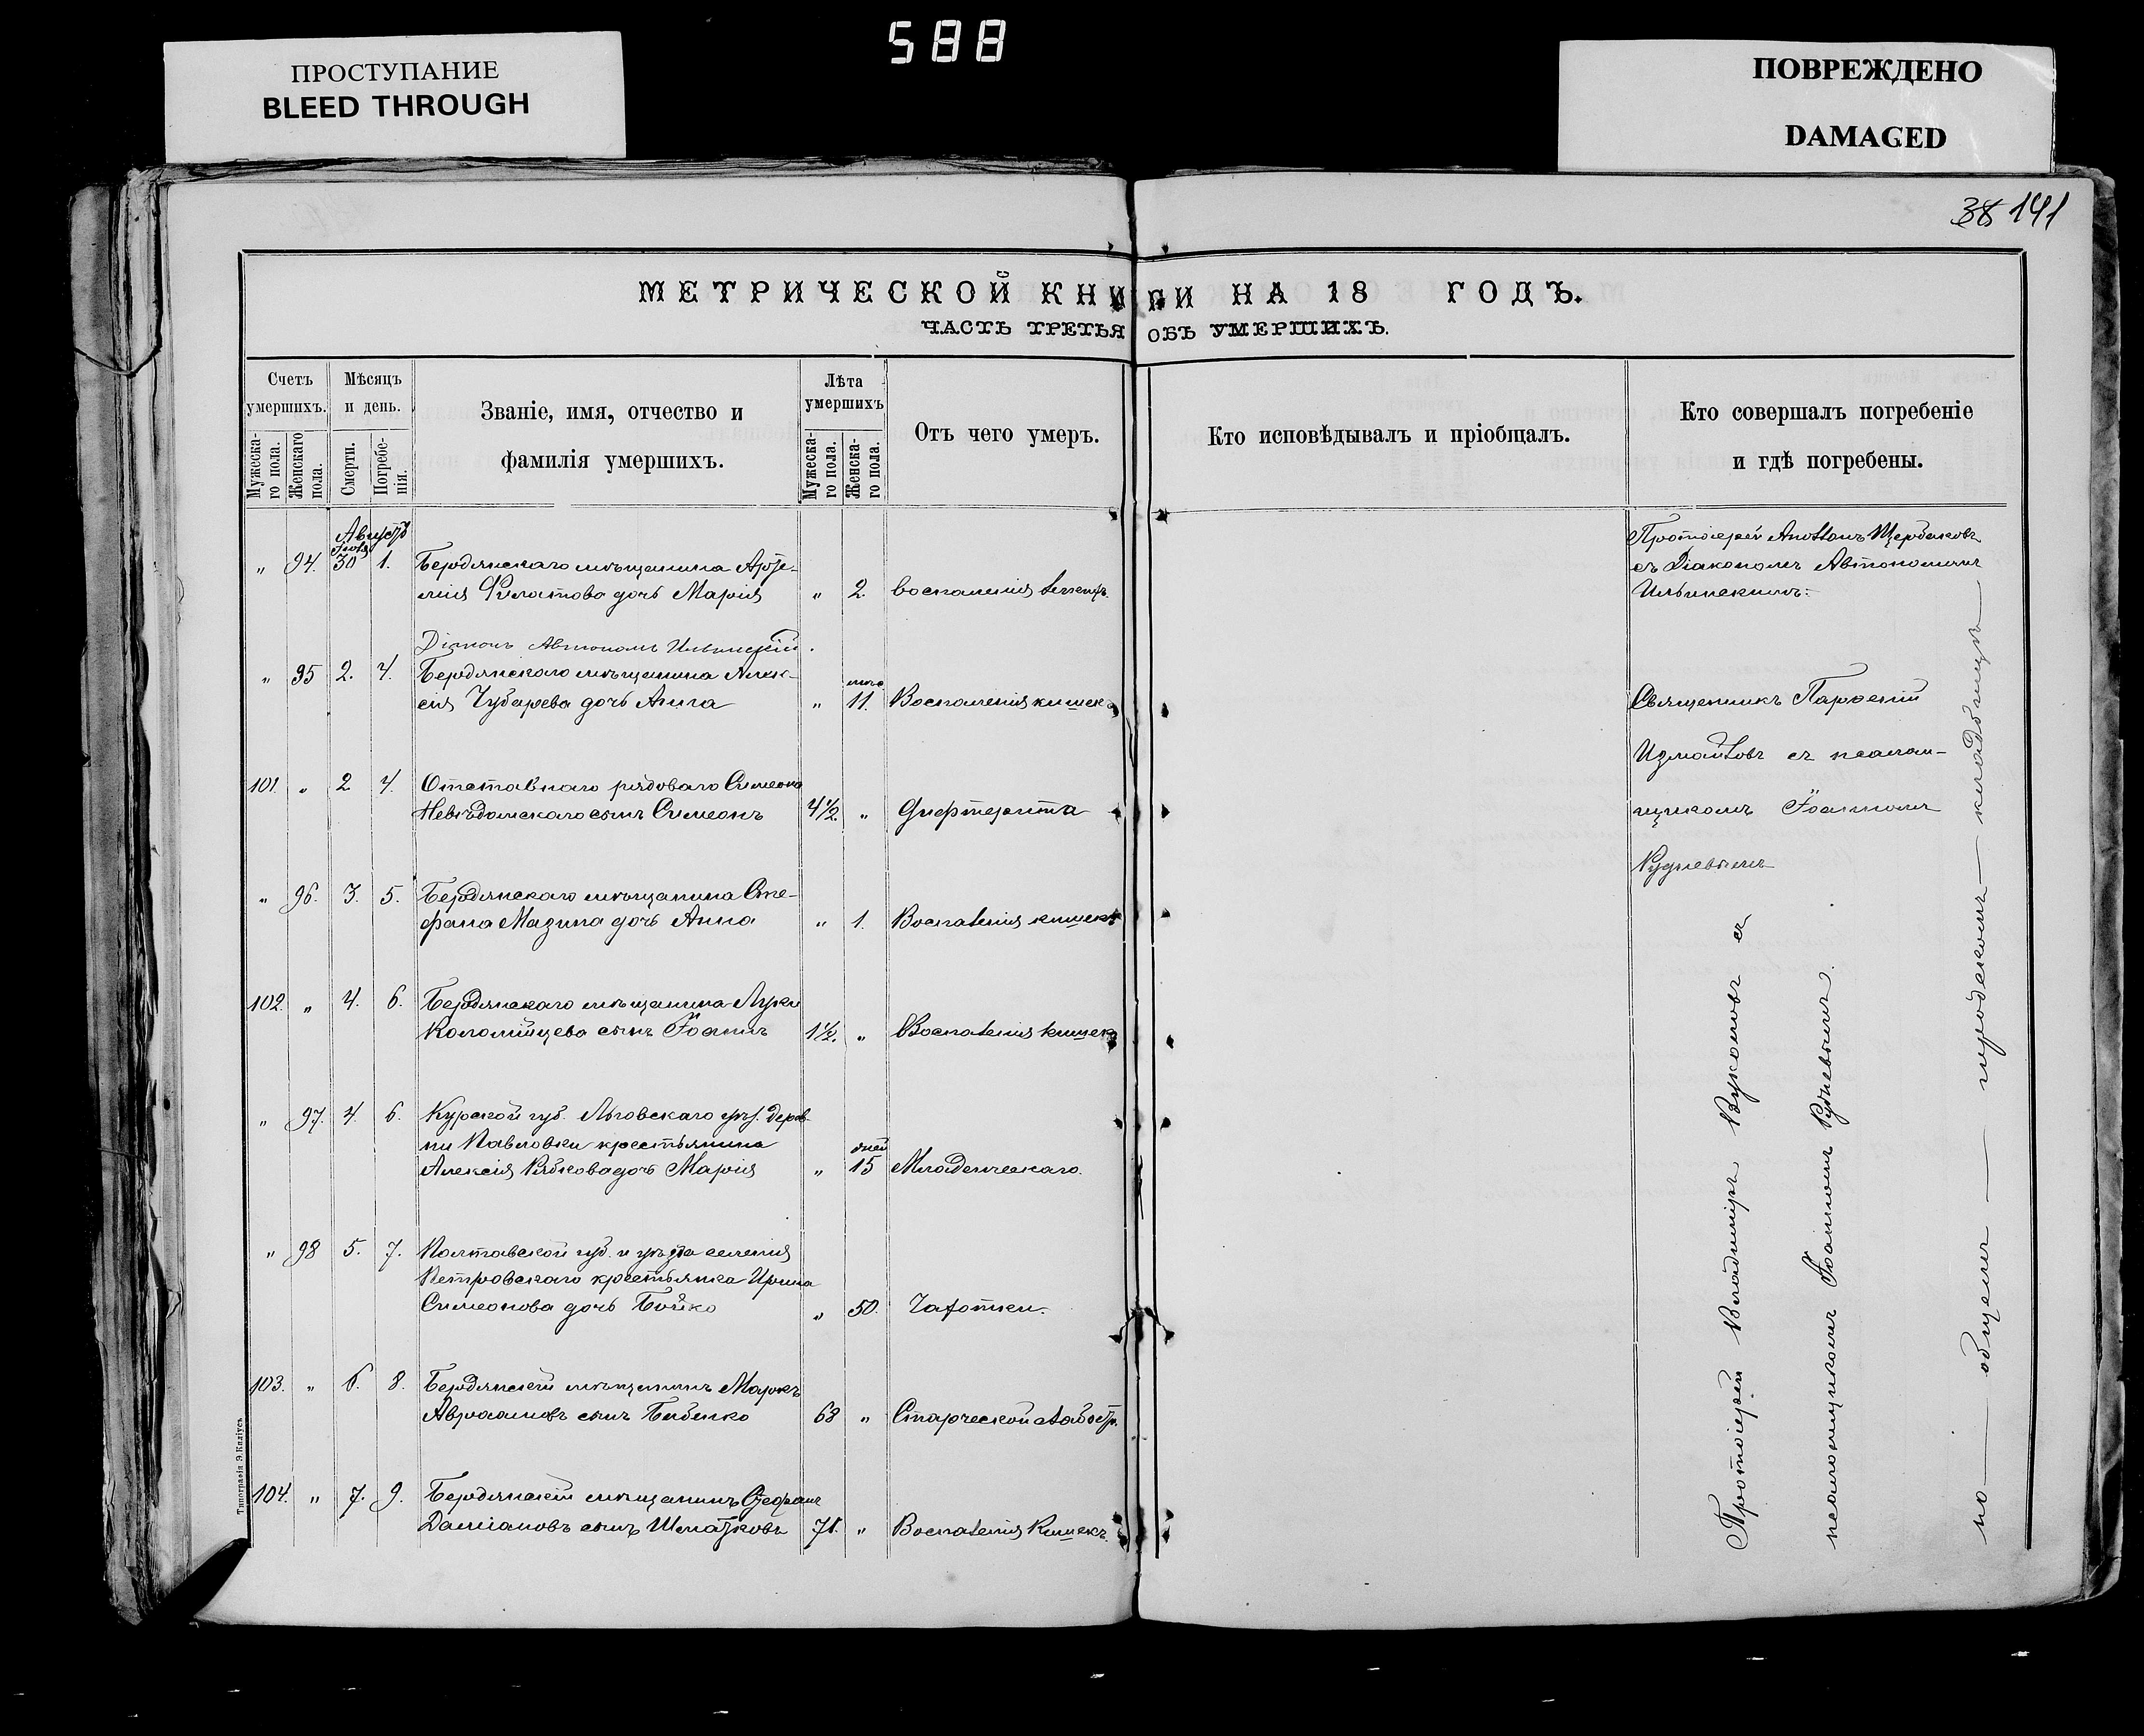 588
ПРОСТУПАНИЕ
BLEED THROUGH
ПОВРЕЖДЕНО
DAMAGED
38 141
МЕТРИЧЕСКОЙ КНИГИ НА 18 ГОДЪ.
ЧАСТЬ ТРЕТЬЯ ОБЪ УМЕРШИХЪ.
Счетъ умершихъ.
Мужеска-го пола.
Женскаго пола.
Мѣсяцъ и день.
Смерти.
Погребе-нія.
Званіе, имя, отчество и
фамилія умершихъ.
Лѣта умершихъ
Мужеска-го пола.
Женска-го пола.
Отъ чего умеръ.
Кто исповѣдывалъ и пріобщалъ.
Кто совершалъ погребеніе
и гдѣ погребены.
Августъ
Іюля
„ 94. 30 1. Бердянскаго мѣщанина Арте-
мія Филатова дочь Марія „ 2. воспаленія
Протоіерей Щербаковъ
съ Діакономъ Автономомъ
Ильинскимъ.
Діаконъ Автономъ Ильинскій.
„ 95 2. 4. Бердянскаго мѣщанина Алек-
сія Чубарева дочь Анна „ 11. Воспаленія кишекъ
Священникъ Парѳеній
Измаиловъ съ псалом-
щикомъ Іоанномъ
Рудневымъ
101. „ 2 4. Отставнаго рядоваго Симеона
Невѣдомскаго сынъ Симеонъ 4½. „ Дифтерита
„ 96. 3. 5. Бердянскаго мѣщанина Сте-
фана Мазина дочь Анна „ 1. Воспаленія кишекъ
102. „ 4. 6. Бердянскаго мѣщанина Луки
Коломійцева сынъ Іоаннъ 1½. „ Воспаленія кишекъ
„ 97. 4 6. Курской губ. Льговскаго уѣз. дерев-
ни Павловки крестьянина
дней
Алексія Рябкова дочь Марія „ 15 Младенческаго.
„ 98 5. 7. Полтавской губ. и уѣзда селенія
Петровскаго крестьянка Ирина
Симеонова дочь Бойко „ 50. Чахотки.
103. „ 6. 8. Бердянскій мѣщанинъ Маркъ
Авраамовъ сынъ Бабенко 68 „ Старческой слабости.
104. „ 7. 9. Бердянскій мѣщанинъ Стефанъ
Даміановъ сынъ Шматковъ 71. „ Воспаленія Кишекъ.
Протоіерей Владиміръ съ
псаломщикомъ Іоанномъ Рудневымъ.
на общемъ городскомъ кладбищѣ
Типографія Э. Килусъ